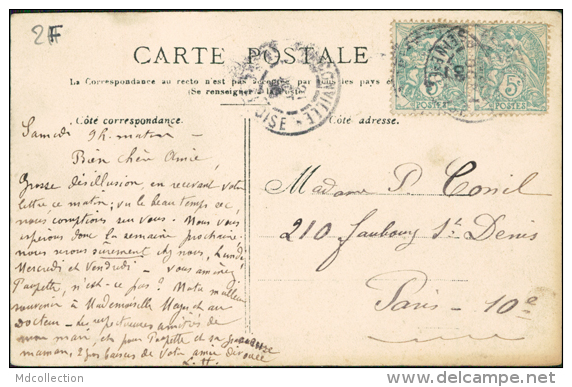 2F
CARTE POSTALE
La Correspondance au recto n'est pas acceptée par tous les pays
(Se renseigner à la Poste)
Côté correspondance.
Côté adresse.
5c 5c
POSTES POSTES
OISE
Samedi 9h. matin –
Bien chère Amie,
Grosse désillusion, en recevant votre
lettre ce matin; vu le beau temps
nous comptions sur vous. Nous vous
espérons donc la semaine prochaine.
nous serons sûrement chez nous, Lundi,
Mercredi et Vendredi – Vous amènerez
n'est-ce pas? Mille
souvenir à Mademoiselle
docteur – Les respectueuses amitiés de
mon mari, et sa
maman, 2 gros baisers de votre amie dévouée
L. H.
Madame P. Consil
210 faubourg St. Denis
Paris – 10e
Mdcollection
delcampe.net